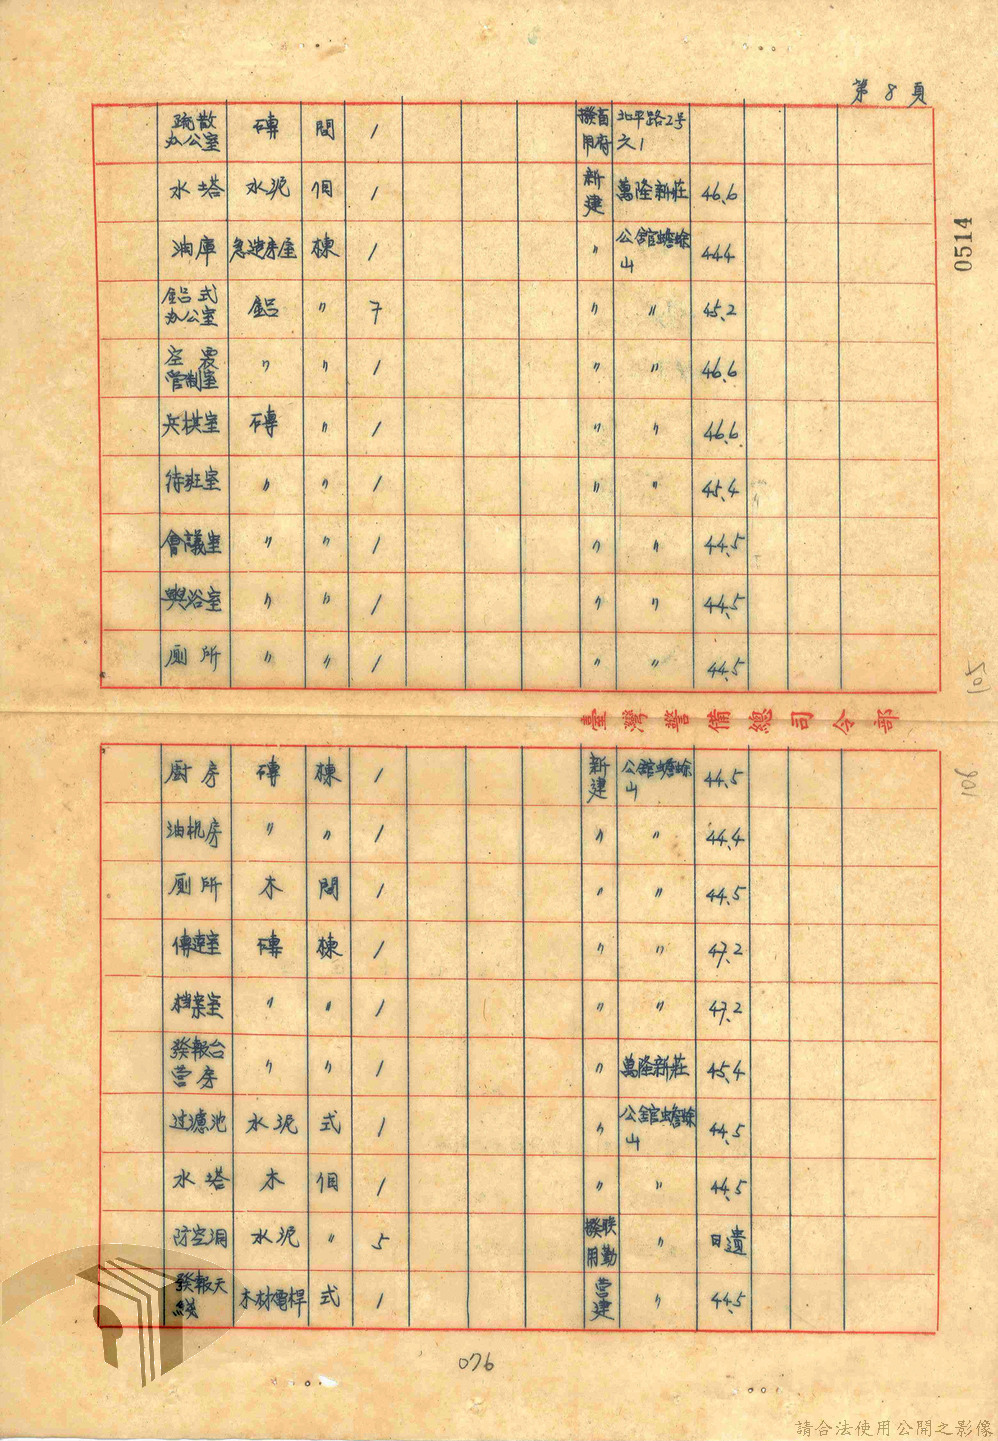 第8頁
0514
疏散办公室 磚 間 1 撥首用府 北平路2号之1
水塔 水泥 個 1 新建 萬隆新莊 46.6
油庫 急造房屋 棟 1 〃 公館蟾蜍山 44.4
鋁式办公室 鋁 〃 7 〃 〃 45.2
空震管制室 〃 〃 1 〃 〃 46.6
兵棋室 磚 〃 1 〃 〃 46.6
待班室 〃 〃 1 〃 〃 45.4
會議室 〃 〃 1 〃 〃 44.5
與浴室 〃 〃 1 〃 〃 44.5
厠所 〃 〃 1 〃 〃 44.5
105
臺灣警備總司令部
106
厨房 磚 棟 1 新建 公館蟾蜍山 44.5
油机房 〃 〃 1 〃 〃 44.4
厠所 木 間 1 〃 〃 44.5
傳達室 磚 棟 1 〃 〃 47.2
档案室 〃 〃 1 〃 〃 47.2
發報台营房 〃 〃 1 〃 萬隆新莊 45.4
过濾池 水泥 式 1 〃 公館蟾蜍山 44.5
水塔 木 個 1 〃 〃 44.5
防空洞 水泥 〃 5 撥联用勤 〃 日遺
發報天綫 木材電桿 式 1 营建 〃 44.5
076
請合法使用公開之影像